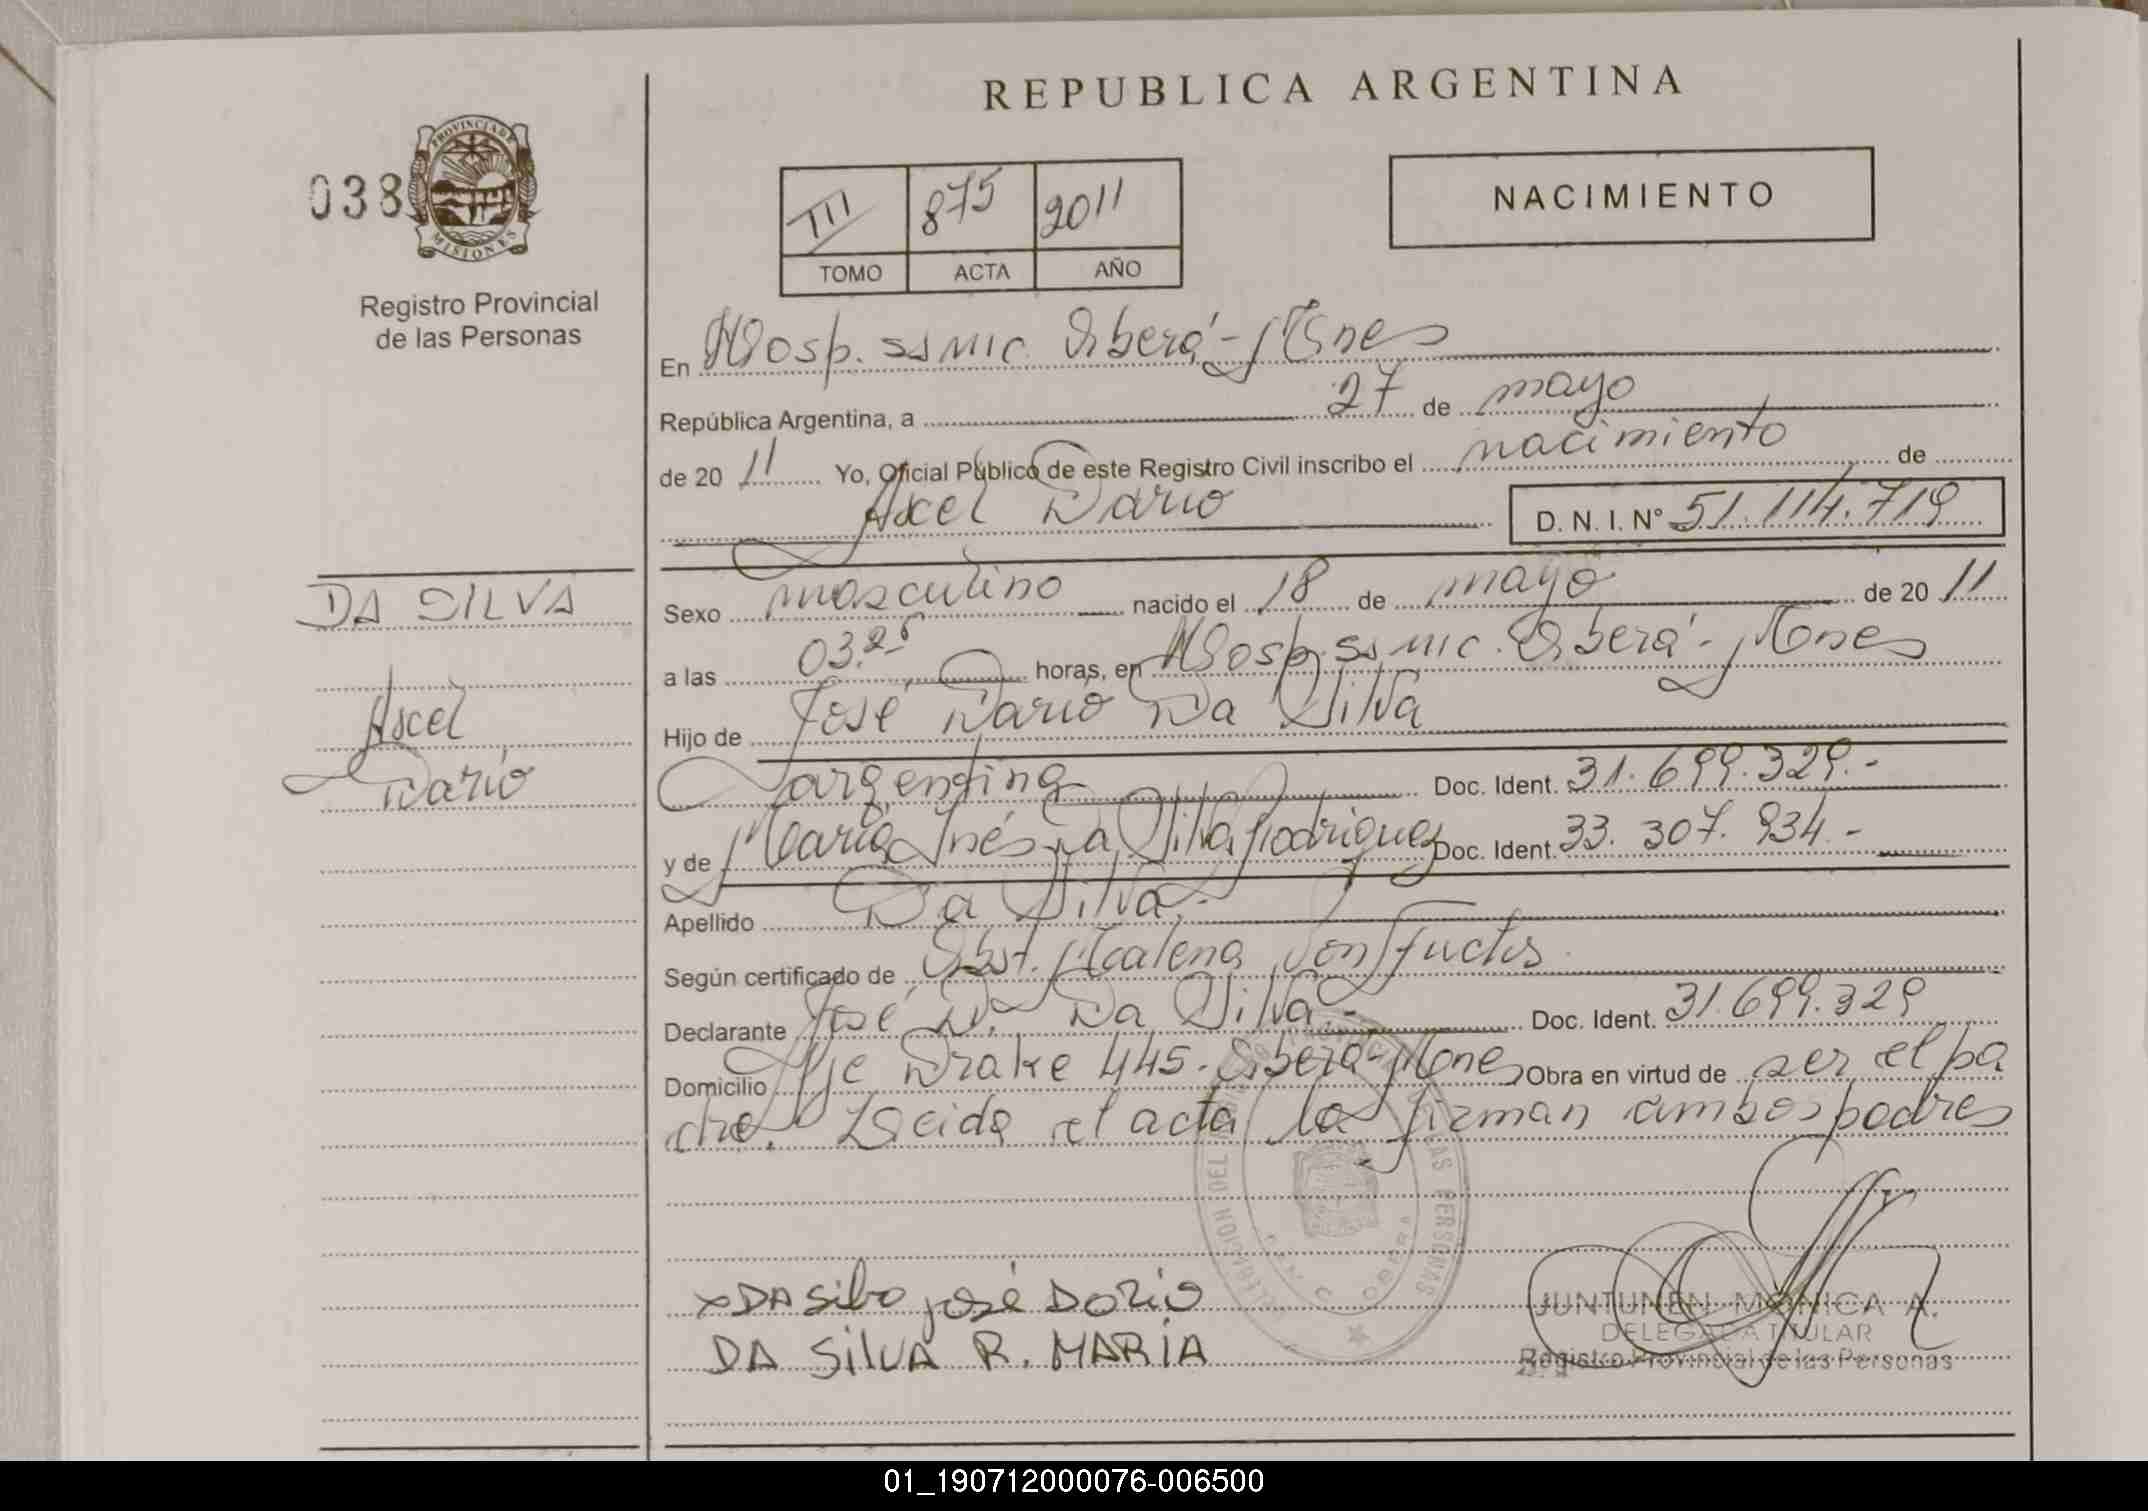 REPUBLICA ARGENTINA
038
PROVINCIA DE MISIONES
Registro Provincial
de las Personas
III 875 2011
TOMO ACTA AÑO
NACIMIENTO
En Hosp. SSMIC Oberá - Mnes
República Argentina, a 27 de mayo
de 2011 Yo, Oficial Público de este Registro Civil inscribo el nacimiento de
Axel Dario
D. N. I. N° 51.114.719
DA SILVA
Axel
Dario
Sexo masculino nacido el 18 de mayo de 2011
a las 03.25 horas, en Hosp. SSMIC. Oberá - Mnes
Hijo de José Dario Da Silva
argentina Doc. Ident. 31.699.329.-
y de María Inés Da Silva Rodriguez Doc. Ident. 33.307.934.-
Apellido Da Silva.-
Según certificado de Obst. Malena Von
Declarante José D. Da Silva.- Doc. Ident. 31.699.329
Domicilio Pje Drake 445. Oberá - Mnes Obra en virtud de ser el pa
dre. Leida el acta la firman ambos padres
x DA Silva José DARIO
DA SILVA R. MARIA
JUNTUNEN MONICA A.
DELEGADA TITULAR
Registro Provincial de las Personas
01_190712000076-006500